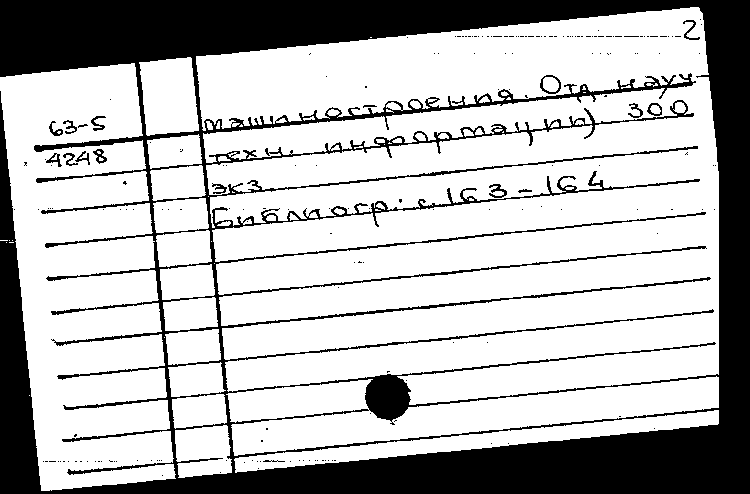 2
63-5 машиностроения. Отд. науч-
4248 техн. информации) 300
экз.
Библиогр.: с. 163-164